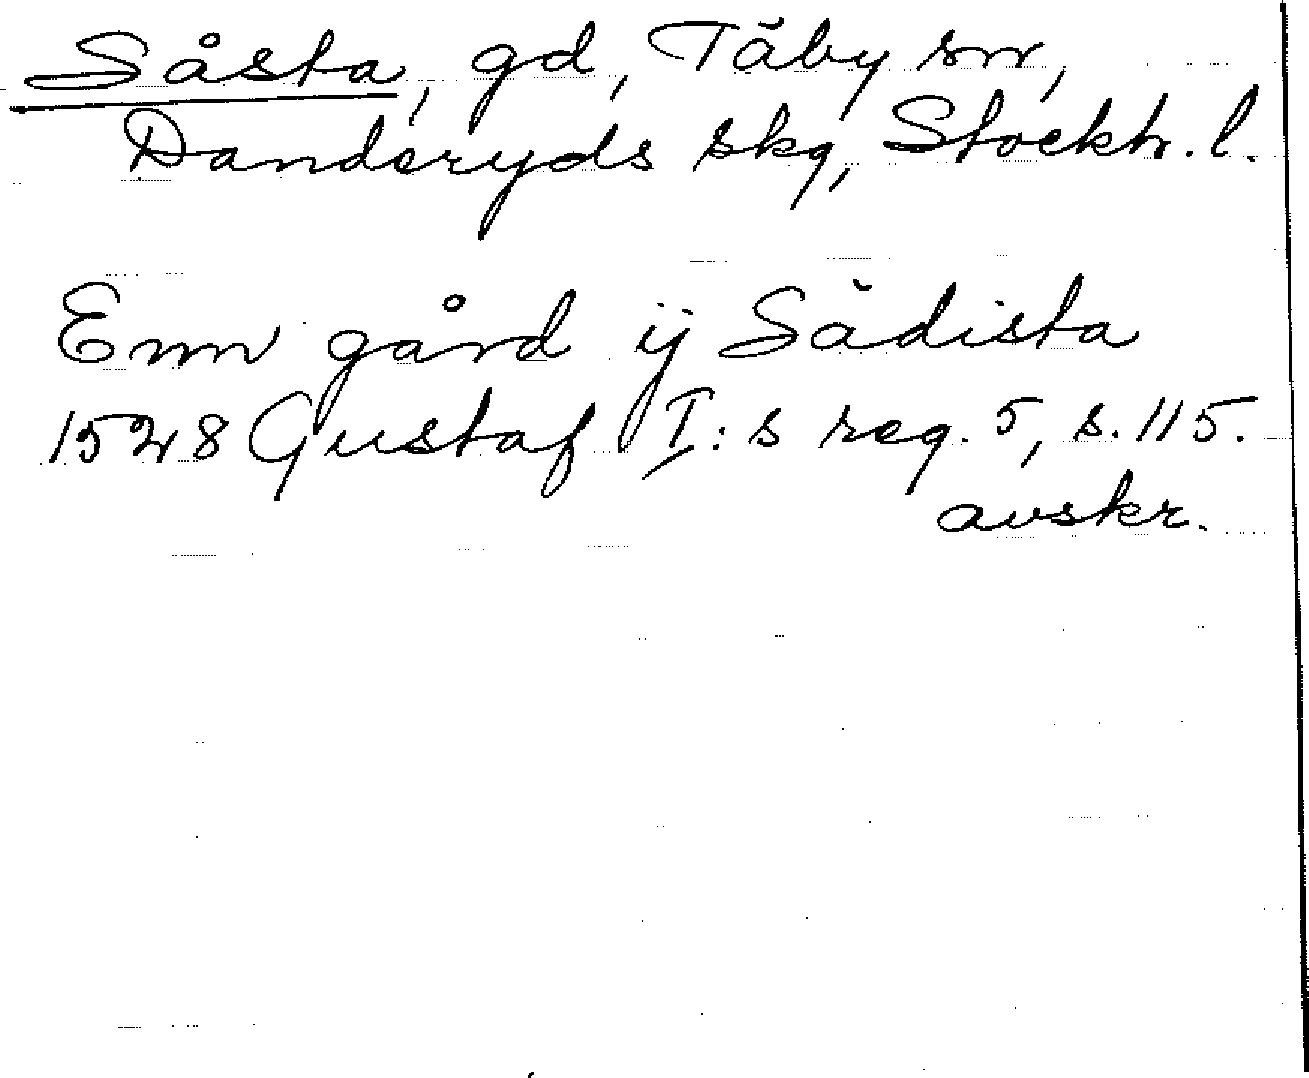 Såsta, gd, Täby sn,
Danderyds skg, Stockh. l.
Enn gård ij Sådista
1528 Gustaf I:s reg. 5, s. 115.
avskr.